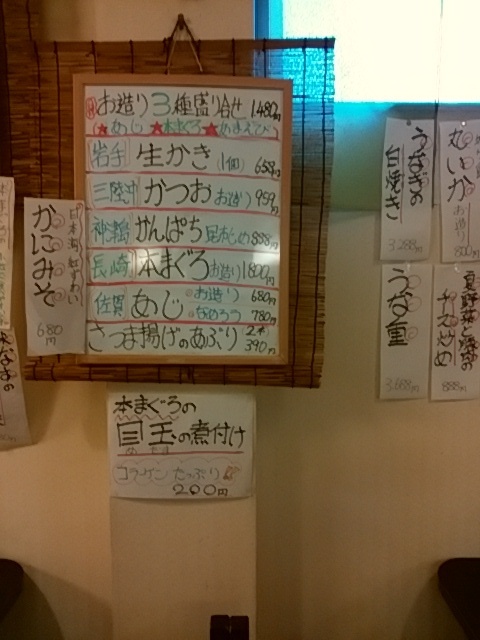 お造り3種盛り合せ 1480円
★あじ ★本まぐろ★
岩手 生かき (1個) 658円
三陸沖 かつお お造り 959円
かんぱち 昆布じめ 888円
長崎 本まぐろ お造り 1800円
佐賀 あじ ・お造り 680円
・なめろう 780円
さつま揚げのあぶり 2ヶ 390円
日本海 紅ずわい
かにみそ
680円
本まぐろの
目玉の煮付け
めだま
コラーゲンたっぷり
200円
丸いか
お造り
800円
うなぎの
白焼き
3,288円
うな重
3,688円
夏野菜と
チーズ炒め
888円